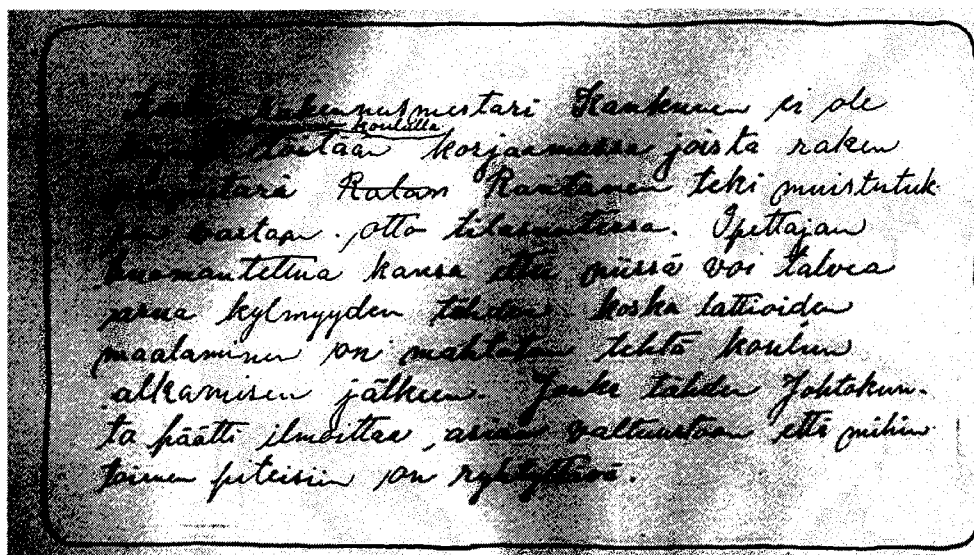 rakennusmestari Kankunen ei ole
koululla
töitään korjaamassa joista raken
Ratam Rantanen teki muistutuk
vastaan otto tilaisuutessa. Opettajan
huomautettua kansa ettei niissä voi talvea
kylmyyden tähden koska lattioiden
maalaminen on mahtoton tehtä koulun
alkamisen jälkeen. Jonka tähden Johtokun-
ta päätti ilmoittaa asian valtuustoon että mihin
toimen piteisiin on ryhtyttävä.